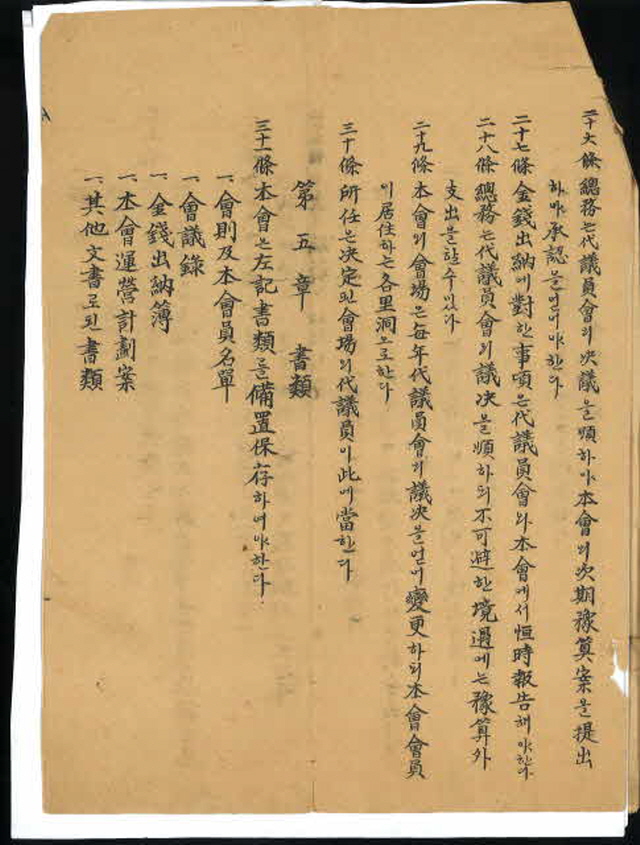 二十六條 總務는代議員會의決議을順하야本會의次期豫算案을提出
하야承認을얻어야한다
二十七條 金錢出納에對한事項는代議員會와本會에서恒時報告해야한다
二十八條 總務는代議員會의議决을順하되不可避한境遇에는豫算外
支出을할수있다
二十九條 本會의會場은每年代議員會의議决을얻어變更하되本會會員
이居住하는各里洞으로한다
三十條 所任은决定된會場의代議員이此에當한다
第五章 書類
三十一條 本會는左記書類를備置保存하여야한다
一、會則及本會員名單
一、會議錄
一、金錢出納簿
一、本會運營計劃案
一、其他文書로된書類